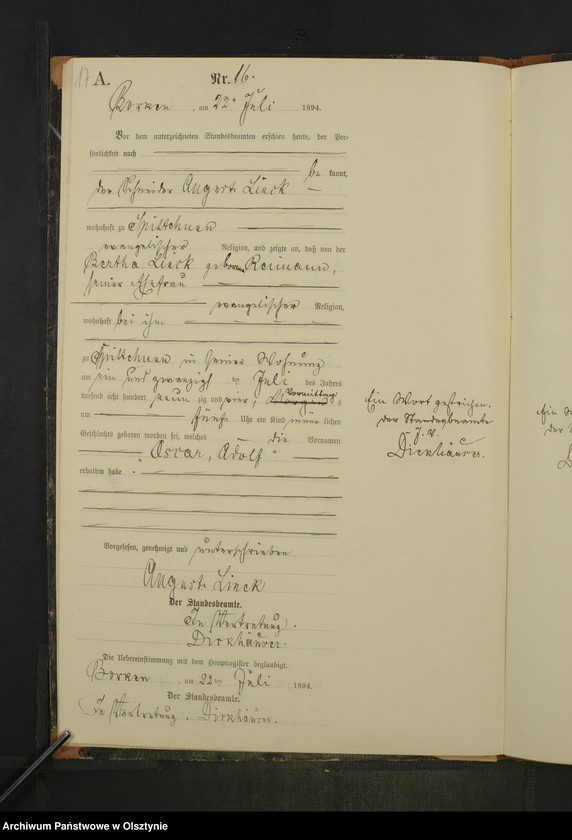 17 A.
Nr. 16.
Borken, am 22. Juli 1894.
Vor dem unterzeichneten Standesbeamten erschien heute, der Per-
sönlichkeit nach
be kannt,
der Schneider August Lieck
wohnhaft zu Spittehnen
evangelischer Religion, und zeigte an, daß von der
Bertha Lieck geborene Reimann,
seiner Ehefrau
evangelischer Religion,
wohnhaft bei ihm
zu Spittehnen in seiner Wohnung
am ein und zwanzigsten Juli des Jahres
tausend acht hundert neun zig und vier, Vormittags
um fünf Uhr ein Kind männ lichen
Geschlechts geboren worden sei, welches die Vornamen
"Oscar, Adolf"
erhalten habe.
Vorgelesen, genehmigt und unterschrieben
August Lieck
Der Standesbeamte.
In Vertretung.
Dickhäuser.
Die Uebereinstimmung mit dem Hauptregister beglaubigt.
Borken am 22ten Juli 1894.
Der Standesbeamte.
In Vertretung. Dickhäuser.
Ein Wort gestrichen.
Der Standesbeamte
J. V.
Dickhäuser.
Archiwum Państwowe w Olsztynie